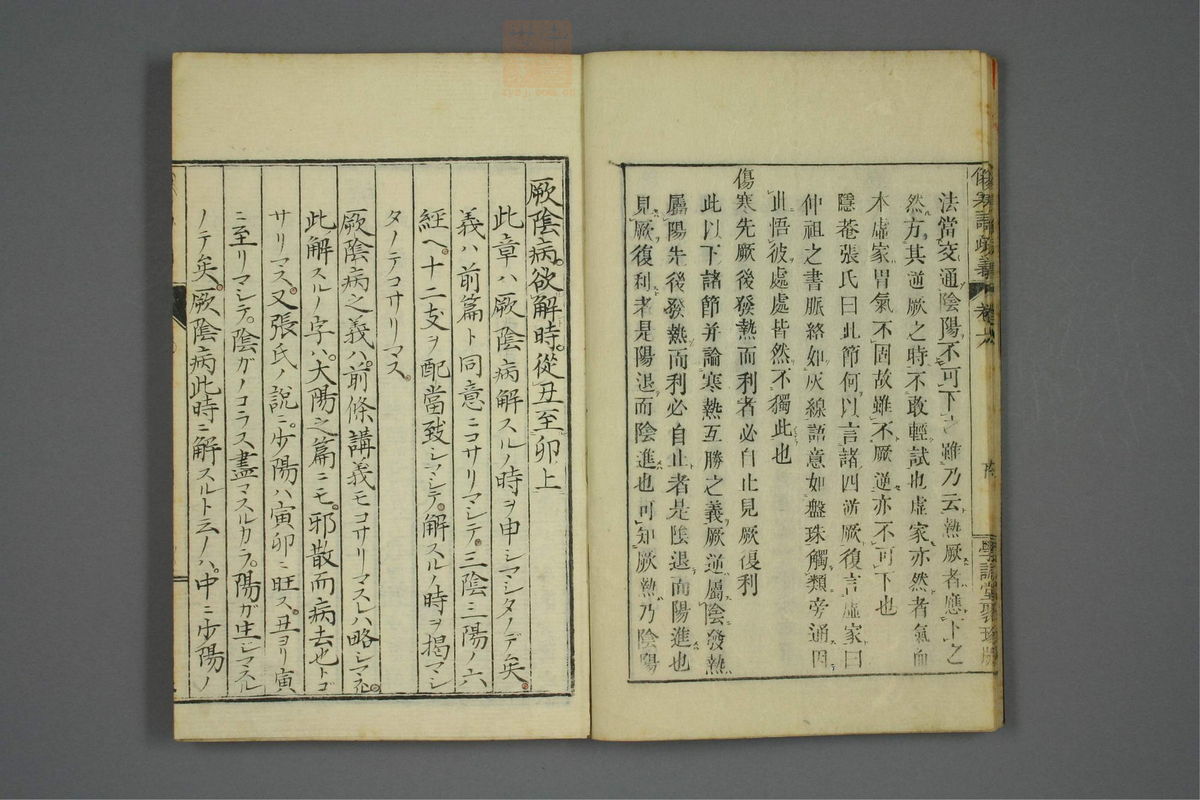 法當交通陰陽不可下之雖乃云熱厥者應下之
然方其逆厥之時不敢輕試也虛家亦然者氣血
本虛家胃氣不固故雖不厥逆亦不可下也
隱菴張氏曰此節何以言諸四逆厥復言虛家曰
仲祖之書脈絡如灰線語意如盤珠觸類旁通因
此悟彼處處皆然不獨此也
傷寒先厥後發熱而利者必自止見厥復利
此以下諸節并論寒熱互勝之義厥逆屬陰發熱
屬陽先後發熱而利必自止者是陰退而陽進也
見厥復利者是陽退而陰進也可知厥熱乃陰陽
厥陰病。欲解時。從丑至卯上
此章ハ厥陰病解スルノ時ヲ申シマシタノデ矣。
義ハ前篇ト同意ニコサリマシテ。三陰三陽ノ六
經ヘ。十二支ヲ配當致シマシテ。解スルノ時ヲ揭マシ
タノテコサリマス。
厥陰病之義ハ。前條講義モコサリマスレハ略シマス。
此解スルノ字ハ。大陽之篇ニモ。邪散而病去也トゴ
サリマス。又張氏ノ說ニ。少陽ハ寅卯ニ旺ス。丑ヨリ寅
ニ至リマシテ。陰ガノコラス盡マスルカラ。陽ガ生シマスル
ノテ矣。厥陰病此時ニ解スルト云ノハ。中ニ少陽ノ